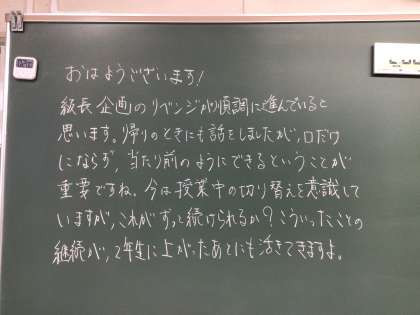 おはようございます!
級長企画のリベンジが順調に進んでいると
思います。帰りのときにも話をしましたが、口だけ
にならず、当たり前のようにできるということが
重要ですね。今は授業中の切り替えを意識して
いますが、これがずっと続けられるか?こういったことの
継続が、2年生に上がったあとにも活きてきますよ。